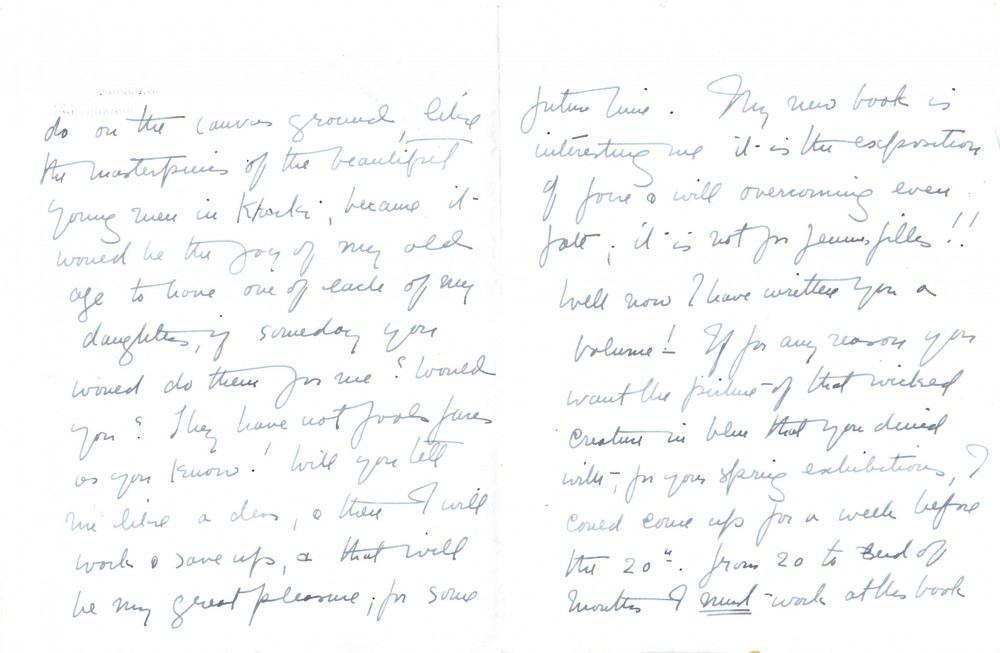 do on the canvas ground, like
the masterpieces of the beautiful
young men in Khaki, because it
would be the joy of my old
age to have one of each of my
daughters, if someday you
would do them for me? Would
you? They have not fools faces
as you know! Will you tell
me like a dear, & then I will
work & save up, & that will
be my great pleasure; for some
future time. My new book is
interesting me it is the exposition
of force & will overcoming even
fate; it is not for jeunes filles!!
Well now I have written you a
volume! If for any reason you
want the picture of that wicked
creature in blue that you dined
with, for your spring exhibitions, I
could come up for a week before
the 20th. from 20 to end of
months I must work at this book